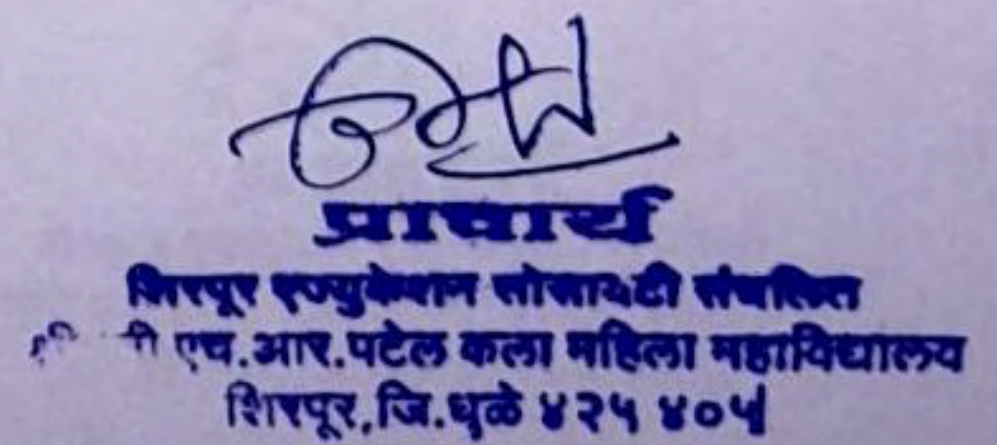 प्राचार्य
शिरपूर एज्युकेशन सोसायटी संचलित
एच.आर.पटेल कला महिला महाविद्यालय
शिरपूर,जि.धुळे ४२५ ४०५